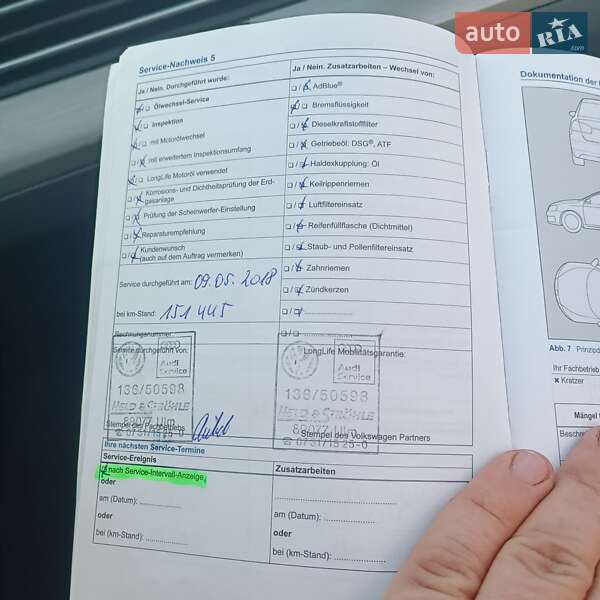 auto RIA.com
Service-Nachweis 5
Ja / Nein. Durchgeführt wurde:
Ölwechsel-Service
Inspektion
mit Motorölwechsel
mit erweitertem Inspektionsumfang
LongLife Motoröl verwendet
Korrosions- und Dichtheitsprüfung der Erd-
gasanlage
Prüfung der Scheinwerfer-Einstellung
Reparaturempfehlung
Kundenwunsch
(auch auf dem Auftrag vermerken)
Service durchgeführt am: 09.05.2018
bei km-Stand: 151 445
Rechnungsnummer:
Service durchgeführt von:
Audi
Service
136/50598
HELD & STRÖHLE
89077 Ulm
Stempel des Fachbetriebs
Ja / Nein. Zusatzarbeiten – Wechsel von:
AdBlue®
Bremsflüssigkeit
Dieselkraftstofffilter
Getriebeöl: DSG®, ATF
Haldexkupplung: Öl
Keilrippenriemen
Luftfiltereinsatz
Reifenfüllflasche (Dichtmittel)
Staub- und Pollenfiltereinsatz
Zahnriemen
Zündkerzen
LongLife Mobilitätsgarantie:
Audi
Service
136/50598
HELD & STRÖHLE
89077 Ulm
Stempel des Volkswagen Partners
Ihre nächsten Service-Termine
Service-Ereignis
nach Service-Intervall-Anzeige
oder
am (Datum):
oder
bei (km-Stand):
Zusatzarbeiten
am (Datum):
oder
bei (km-Stand):
Dokumentation der
Abb. 7 Prinzipd
Ihr Fachbetrieb
× Kratzer
Mängel